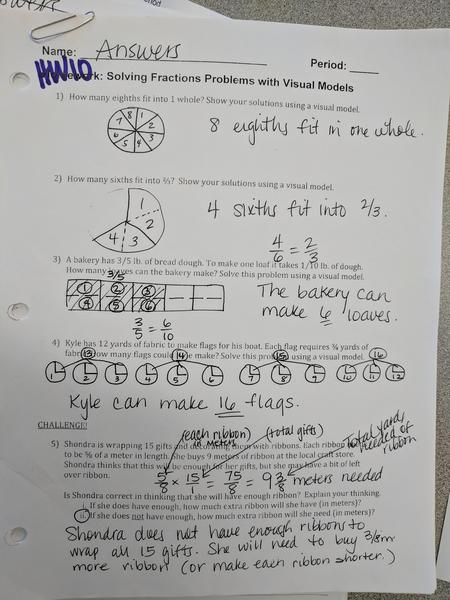 Name: Answers
Period:
HW10
work: Solving Fractions Problems with Visual Models
1) How many eighths fit into 1 whole? Show your solutions using a visual model.
8 1
7 2
6 3
5 4
8 eighths fit in one whole.
2) How many sixths fit into ⅔? Show your solutions using a visual model.
1
2
4 3
4 sixths fit into 2/3.
4/6 = 2/3
3) A bakery has 3/5 lb. of bread dough. To make one loaf it takes 1/10 lb. of dough.
How many loaves can the bakery make? Solve this problem using a visual model.
3/5
1 2 3
4 5 6
The bakery can
make 6 loaves.
3/5 = 6/10
4) Kyle has 12 yards of fabric to make flags for his boat. Each flag requires ¾ yards of
fabric. How many flags could he make? Solve this problem using a visual model.
13 14 15 16
1 2 3 4 5 6 7 8 9 10 11 12
Kyle can make 16 flags.
CHALLENGE!
(each ribbon) (total gifts) Total yards
in meters needed of
ribbon
5) Shondra is wrapping 15 gifts and decorating them with ribbons. Each ribbon
to be ⅝ of a meter in length. She buys 9 meters of ribbon at the local craft store.
Shondra thinks that this will be enough for her gifts, but she may have a bit of left
over ribbon.
5/8 × 15/1 = 75/8 = 9 3/8 meters needed
Is Shondra correct in thinking that she will have enough ribbon? Explain your thinking.
i. If she does have enough, how much extra ribbon will she have (in meters)?
ii. If she does not have enough, how much extra ribbon will she need (in meters)?
Shondra does not have enough ribbons to
wrap all 15 gifts. She will need to buy 3/8 m
more ribbon (or make each ribbon shorter.)